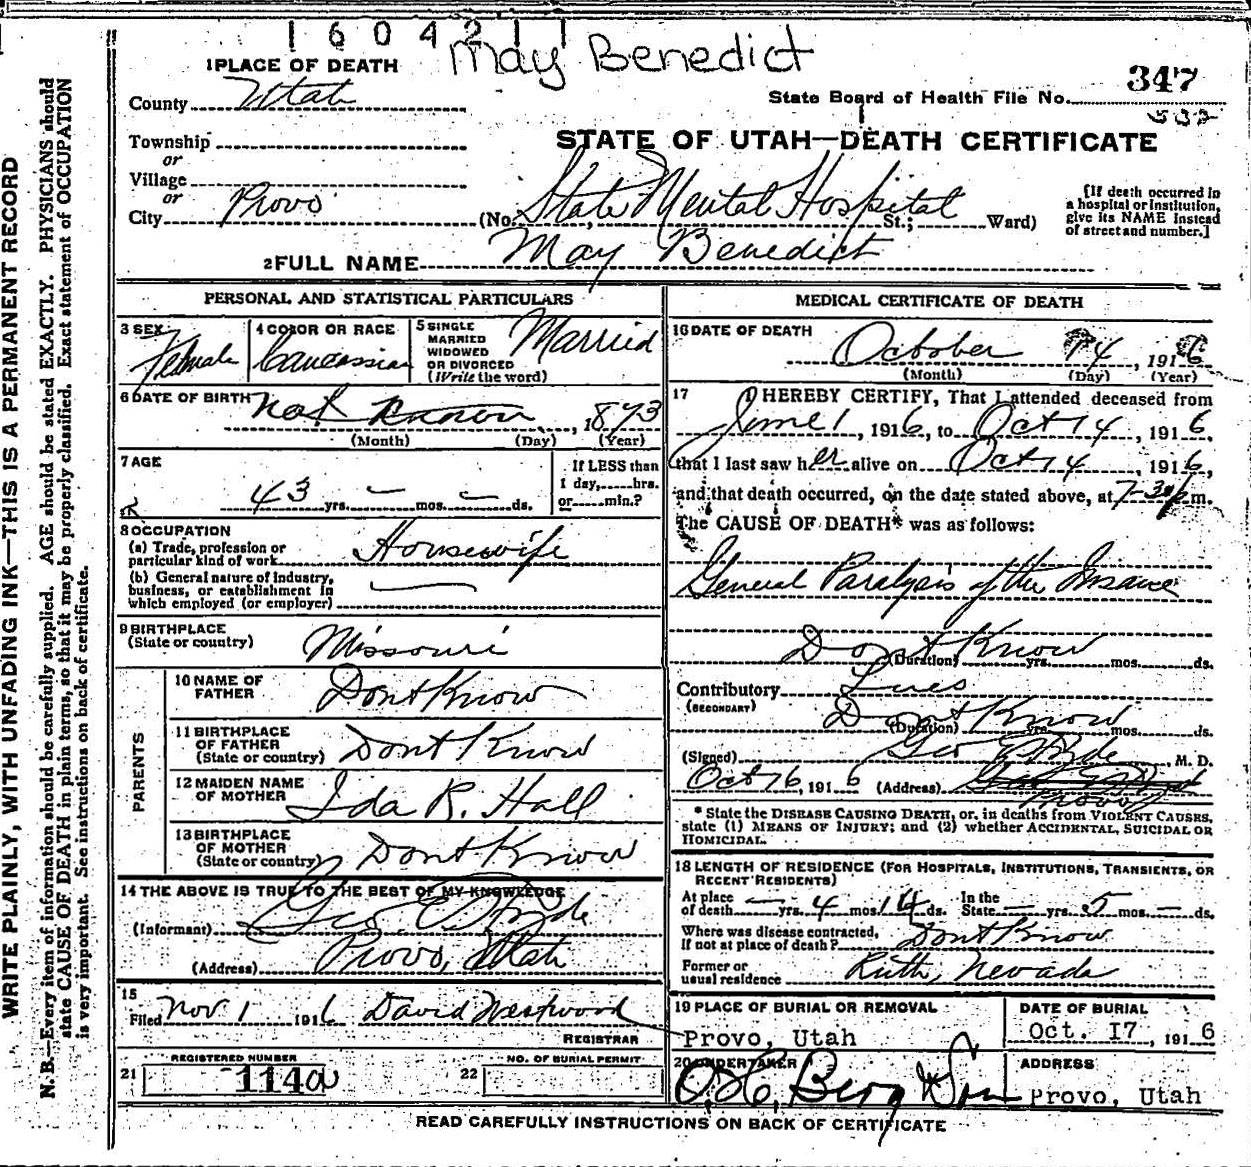 160421 1
May Benedict
1 PLACE OF DEATH
347
County Utah
State Board of Health File No.
532
Township
STATE OF UTAH—DEATH CERTIFICATE
or
Village
or
City Provo (No. State Mental Hospital St.; Ward)
[If death occurred in
a hospital or institution,
give its NAME instead
of street and number.]
2 FULL NAME May Benedict
PERSONAL AND STATISTICAL PARTICULARS
3 SEX Female
4 COLOR OR RACE Caucassian
5 SINGLE
MARRIED
WIDOWED
OR DIVORCED
(Write the word)
Married
6 DATE OF BIRTH not known, 1873
(Month) (Day) (Year)
7 AGE
43 yrs. — mos. — ds.
If LESS than
1 day, hrs.
or min.?
8 OCCUPATION
(a) Trade, profession or
particular kind of work Housewife
(b) General nature of industry,
business, or establishment in
which employed (or employer) —
9 BIRTHPLACE
(State or country) Missouri
PARENTS
10 NAME OF
FATHER Dont Know
11 BIRTHPLACE
OF FATHER
(State or country) Dont Know
12 MAIDEN NAME
OF MOTHER Ida R. Hall
13 BIRTHPLACE
OF MOTHER
(State or country) Dont Know
14 THE ABOVE IS TRUE TO THE BEST OF MY KNOWLEDGE
(Informant) Geo E Hyde
(Address) Provo, Utah
15
Filed Nov 1 1916 David Westwood
REGISTRAR
21 REGISTERED NUMBER
1140
22 NO. OF BURIAL PERMIT
MEDICAL CERTIFICATE OF DEATH
16 DATE OF DEATH
October 14, 1916
(Month) (Day) (Year)
17 I HEREBY CERTIFY, That I attended deceased from
June 1, 1916, to Oct 14, 1916,
that I last saw her alive on Oct 14, 1916,
and that death occurred, on the date stated above, at 7-30 p m.
The CAUSE OF DEATH* was as follows:
General Paralysis of the Insane
Dont Know
(Duration) yrs. mos. ds.
Contributory Lues
(SECONDARY)
Dont Know
(Duration) yrs. mos. ds.
(Signed) Geo E Hyde M. D.
Oct 16, 1916 (Address) Geo E Hyde
Provo
* State the DISEASE CAUSING DEATH, or, in deaths from VIOLENT CAUSES,
state (1) MEANS OF INJURY; and (2) whether ACCIDENTAL, SUICIDAL OR
HOMICIDAL.
18 LENGTH OF RESIDENCE (FOR HOSPITALS, INSTITUTIONS, TRANSIENTS, OR
RECENT RESIDENTS)
At place
of death — yrs. 4 mos. 14 ds.
In the
State — yrs. 5 mos. — ds.
Where was disease contracted,
If not at place of death? Dont Know
Former or
usual residence Ruth, Nevada
19 PLACE OF BURIAL OR REMOVAL
Provo, Utah
DATE OF BURIAL
Oct. 17, 1916
20 UNDERTAKER
O, H, Berg & Son
ADDRESS
Provo, Utah
READ CAREFULLY INSTRUCTIONS ON BACK OF CERTIFICATE
WRITE PLAINLY, WITH UNFADING INK—THIS IS A PERMANENT RECORD
N. B.—Every item of information should be carefully supplied. AGE should be stated EXACTLY. PHYSICIANS should
state CAUSE OF DEATH in plain terms, so that it may be properly classified. Exact statement of OCCUPATION
is very important. See instructions on back of certificate.